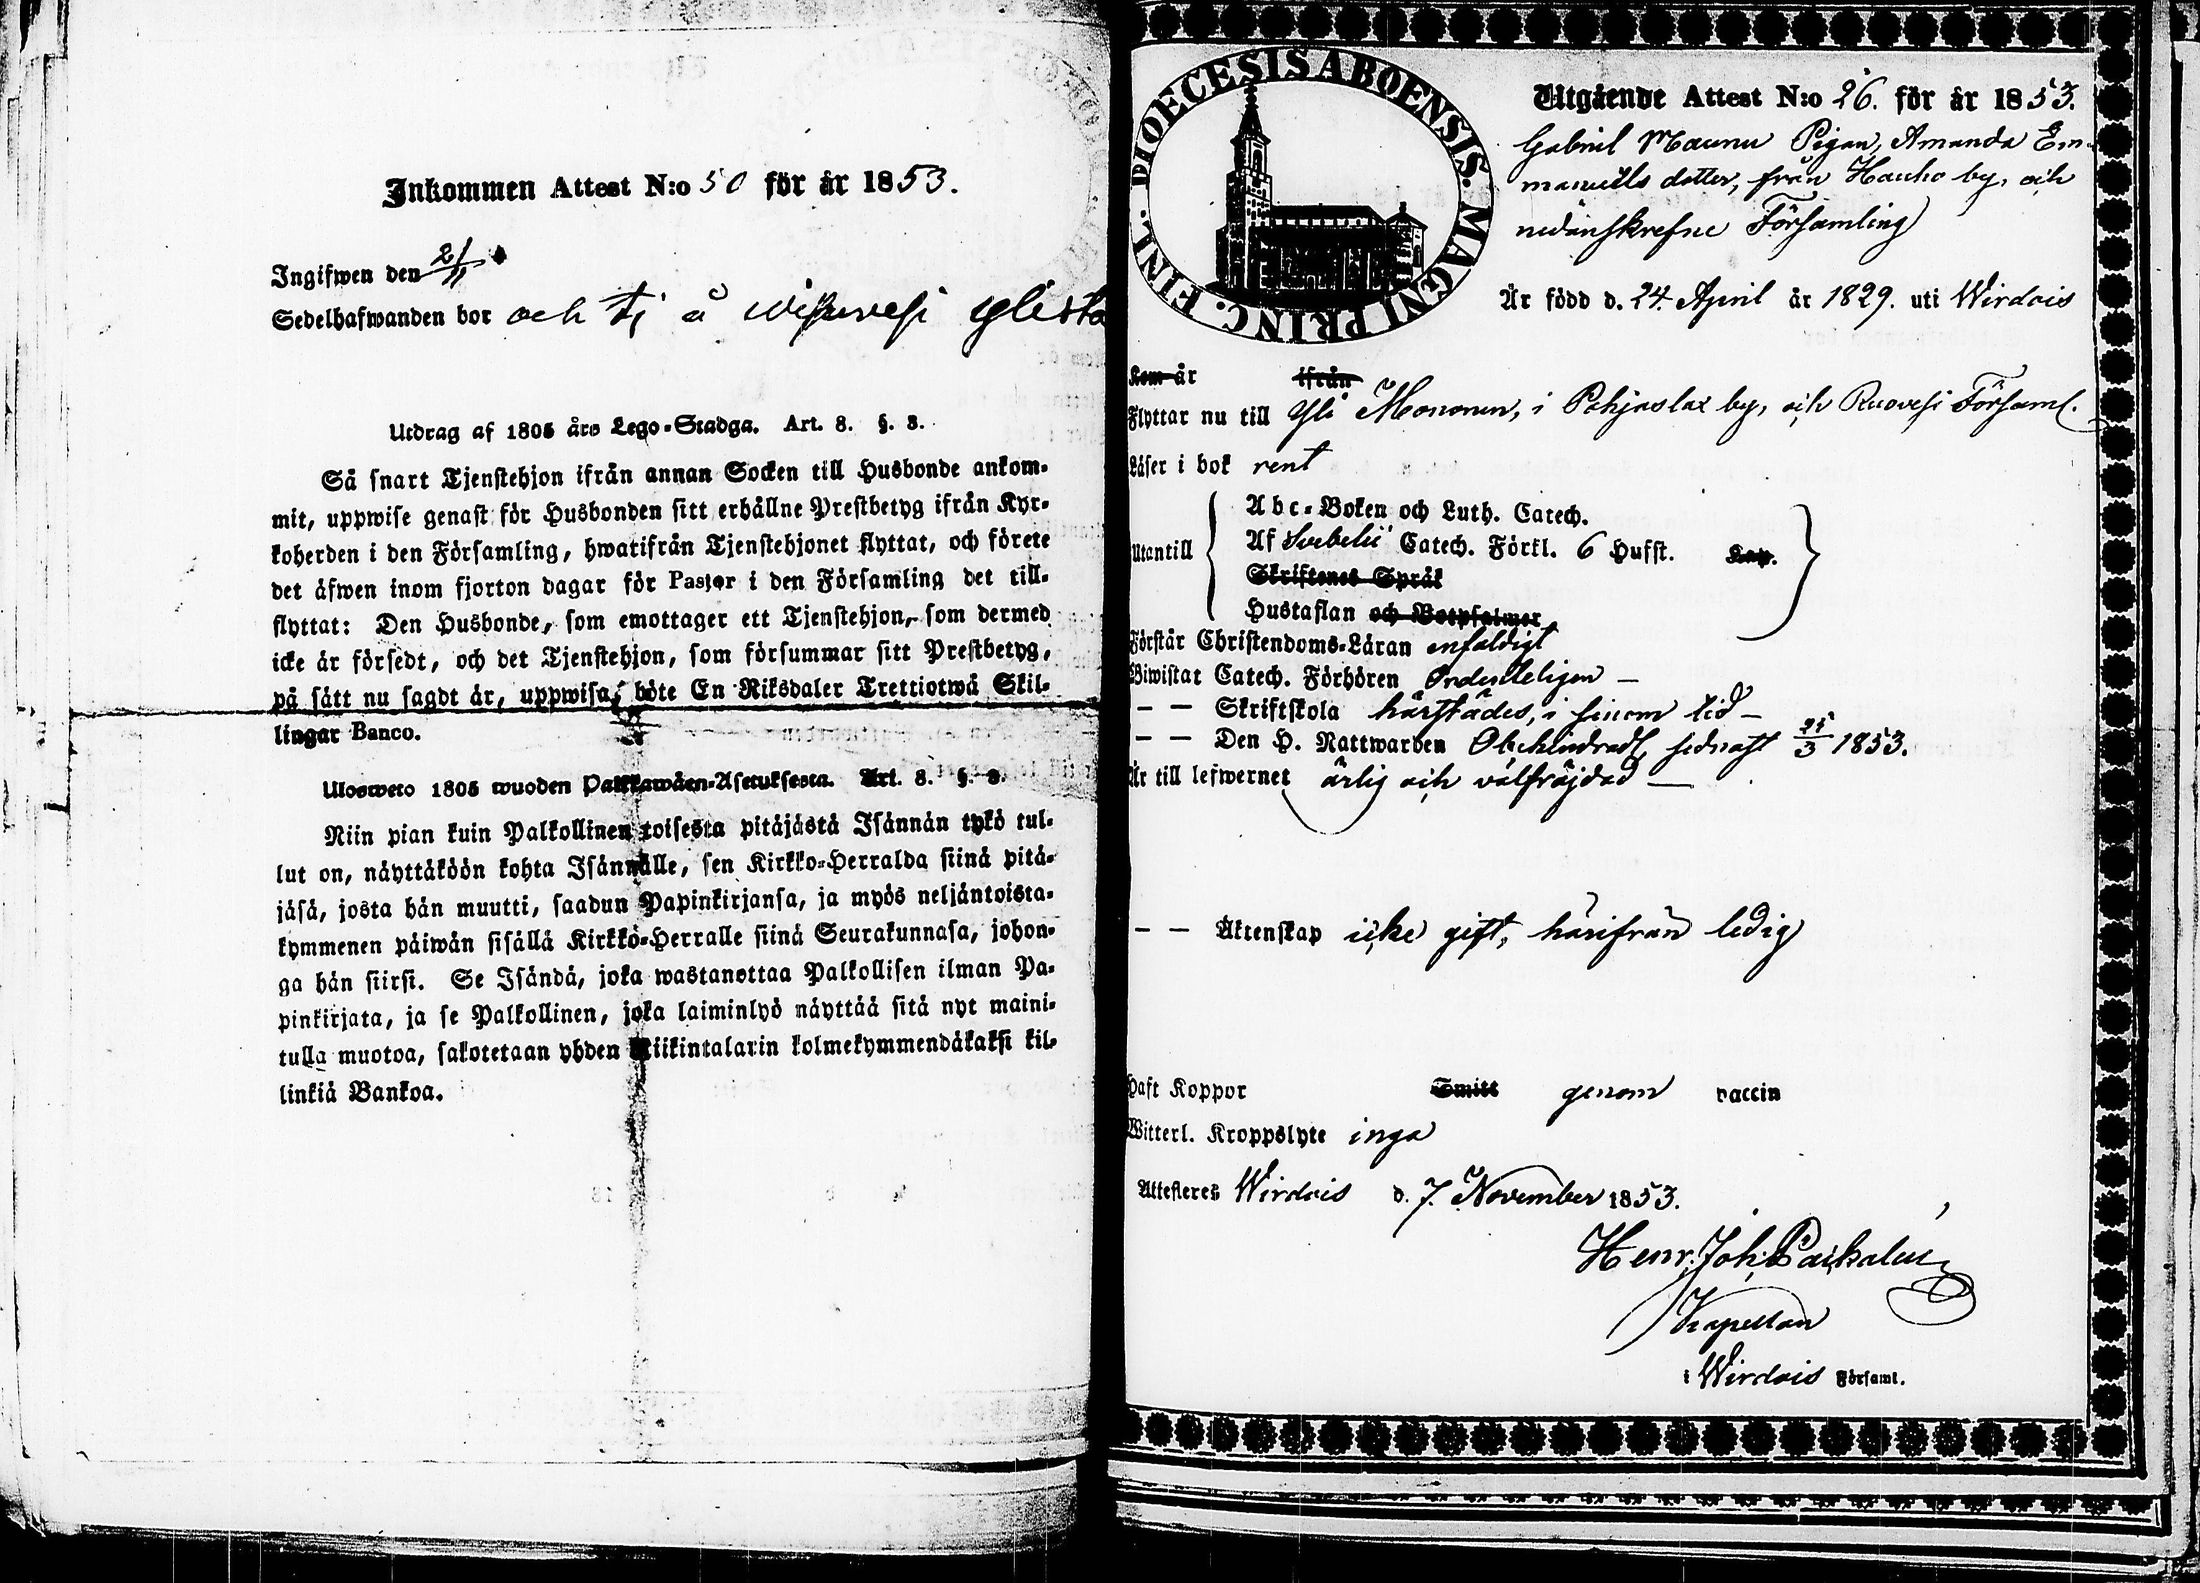 Inkommen Attest N:o 50 för år 1853.
Ingifwen den 21/11
Sedelhafwanden bor och tj å
Utdrag af 1805 års Lego-Stadga. Art. 8. §. 3.
Så snart Tjenstehjon ifrån annan Socken till Husbonde ankom-
mit, uppwise genast för Husbonden sitt erhållne Prestbetyg ifrån Kyr-
koherden i den Församling, hwarifrån Tjenstehjonet flyttat, och förete
det äfwen inom fjorton dagar för Pastor i den Församling det till-
flyttat: Den Husbonde, som emottager ett Tjenstehjon, som dermed
icke är försedt, och det Tjenstehjon, som försummar sitt Prestbetyg,
på sätt nu sagdt är, uppwisa, böte En Riksdaler Trettiotwå Skil-
lingar Banco.
Ulosweto 1805 wuoden Palkkawäen-Asetuksesta. Art. 8. §. 3.
Niin pian kuin Palkollinen toisesta pitäjästä Isännän tykö tul-
lut on, näyttäköön kohta Isännälle, sen Kirkko-Herralda siinä pitä-
jäsä, josta hän muutti, saadun Papinkirjansa, ja myös neljäntoista-
kymmenen päiwän sisällä Kirkko-Herralle siinä Seurakunnasa, johon-
ga hän siirsi. Se Isändä, joka wastanottaa Palkollisen ilman Pa-
pinkirjata, ja se Palkollinen, joka laiminlyö näyttää sitä nyt maini-
tulla muotoa, sakotetaan yhden Riikintalarin kolmekymmendäkaksi kil-
linkiä Bankoa.
DIOECESIS ABOENSIS. MAGNI PRINC. FINL.
Utgående Attest N:o 26. för år 1853.
Gabriel Maunu Pigan, Amanda Em-
manuells dotter, från Hauho by, och
nedanskrefne Församling
Är född d. 24. April år 1829. uti Wirdois
Kom år ifrån
Flyttar nu till Yli Mononen, i Pohjaslax by, och Ruovesi Församl.
Läser i bok rent
Utantill
Abc-Boken och Luth. Catech.
Af Svebelii Catech. Förkl. 6 Hufst. Kap.
Skriftenes Språk
Hustaflan och Botpsalmer
Förstår Christendoms-Läran enfaldigt
Biwistat Catech. Förhören Ordenteligen —
— — Skriftskola härstädes, i sinom tid —
— — Den H. Nattwarden Obehindradt, sednast 25/3 1853.
Är till lefwernet ärlig och välfräjdad —
— — Äktenskap icke gift, härifrån ledig
Haft Koppor Smitt genom vaccin
Witterl. Kroppslyte inga
Attesteres Wirdois d. 7. November 1853.
Henr. Joh.
Kapellan
i Wirdois Församl.